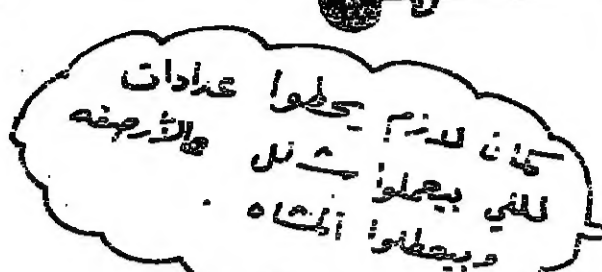 كمان لازم يحطوا عدادات
للي بيعملوا شلل عالأرصفه
وبيعطلوا المشاه